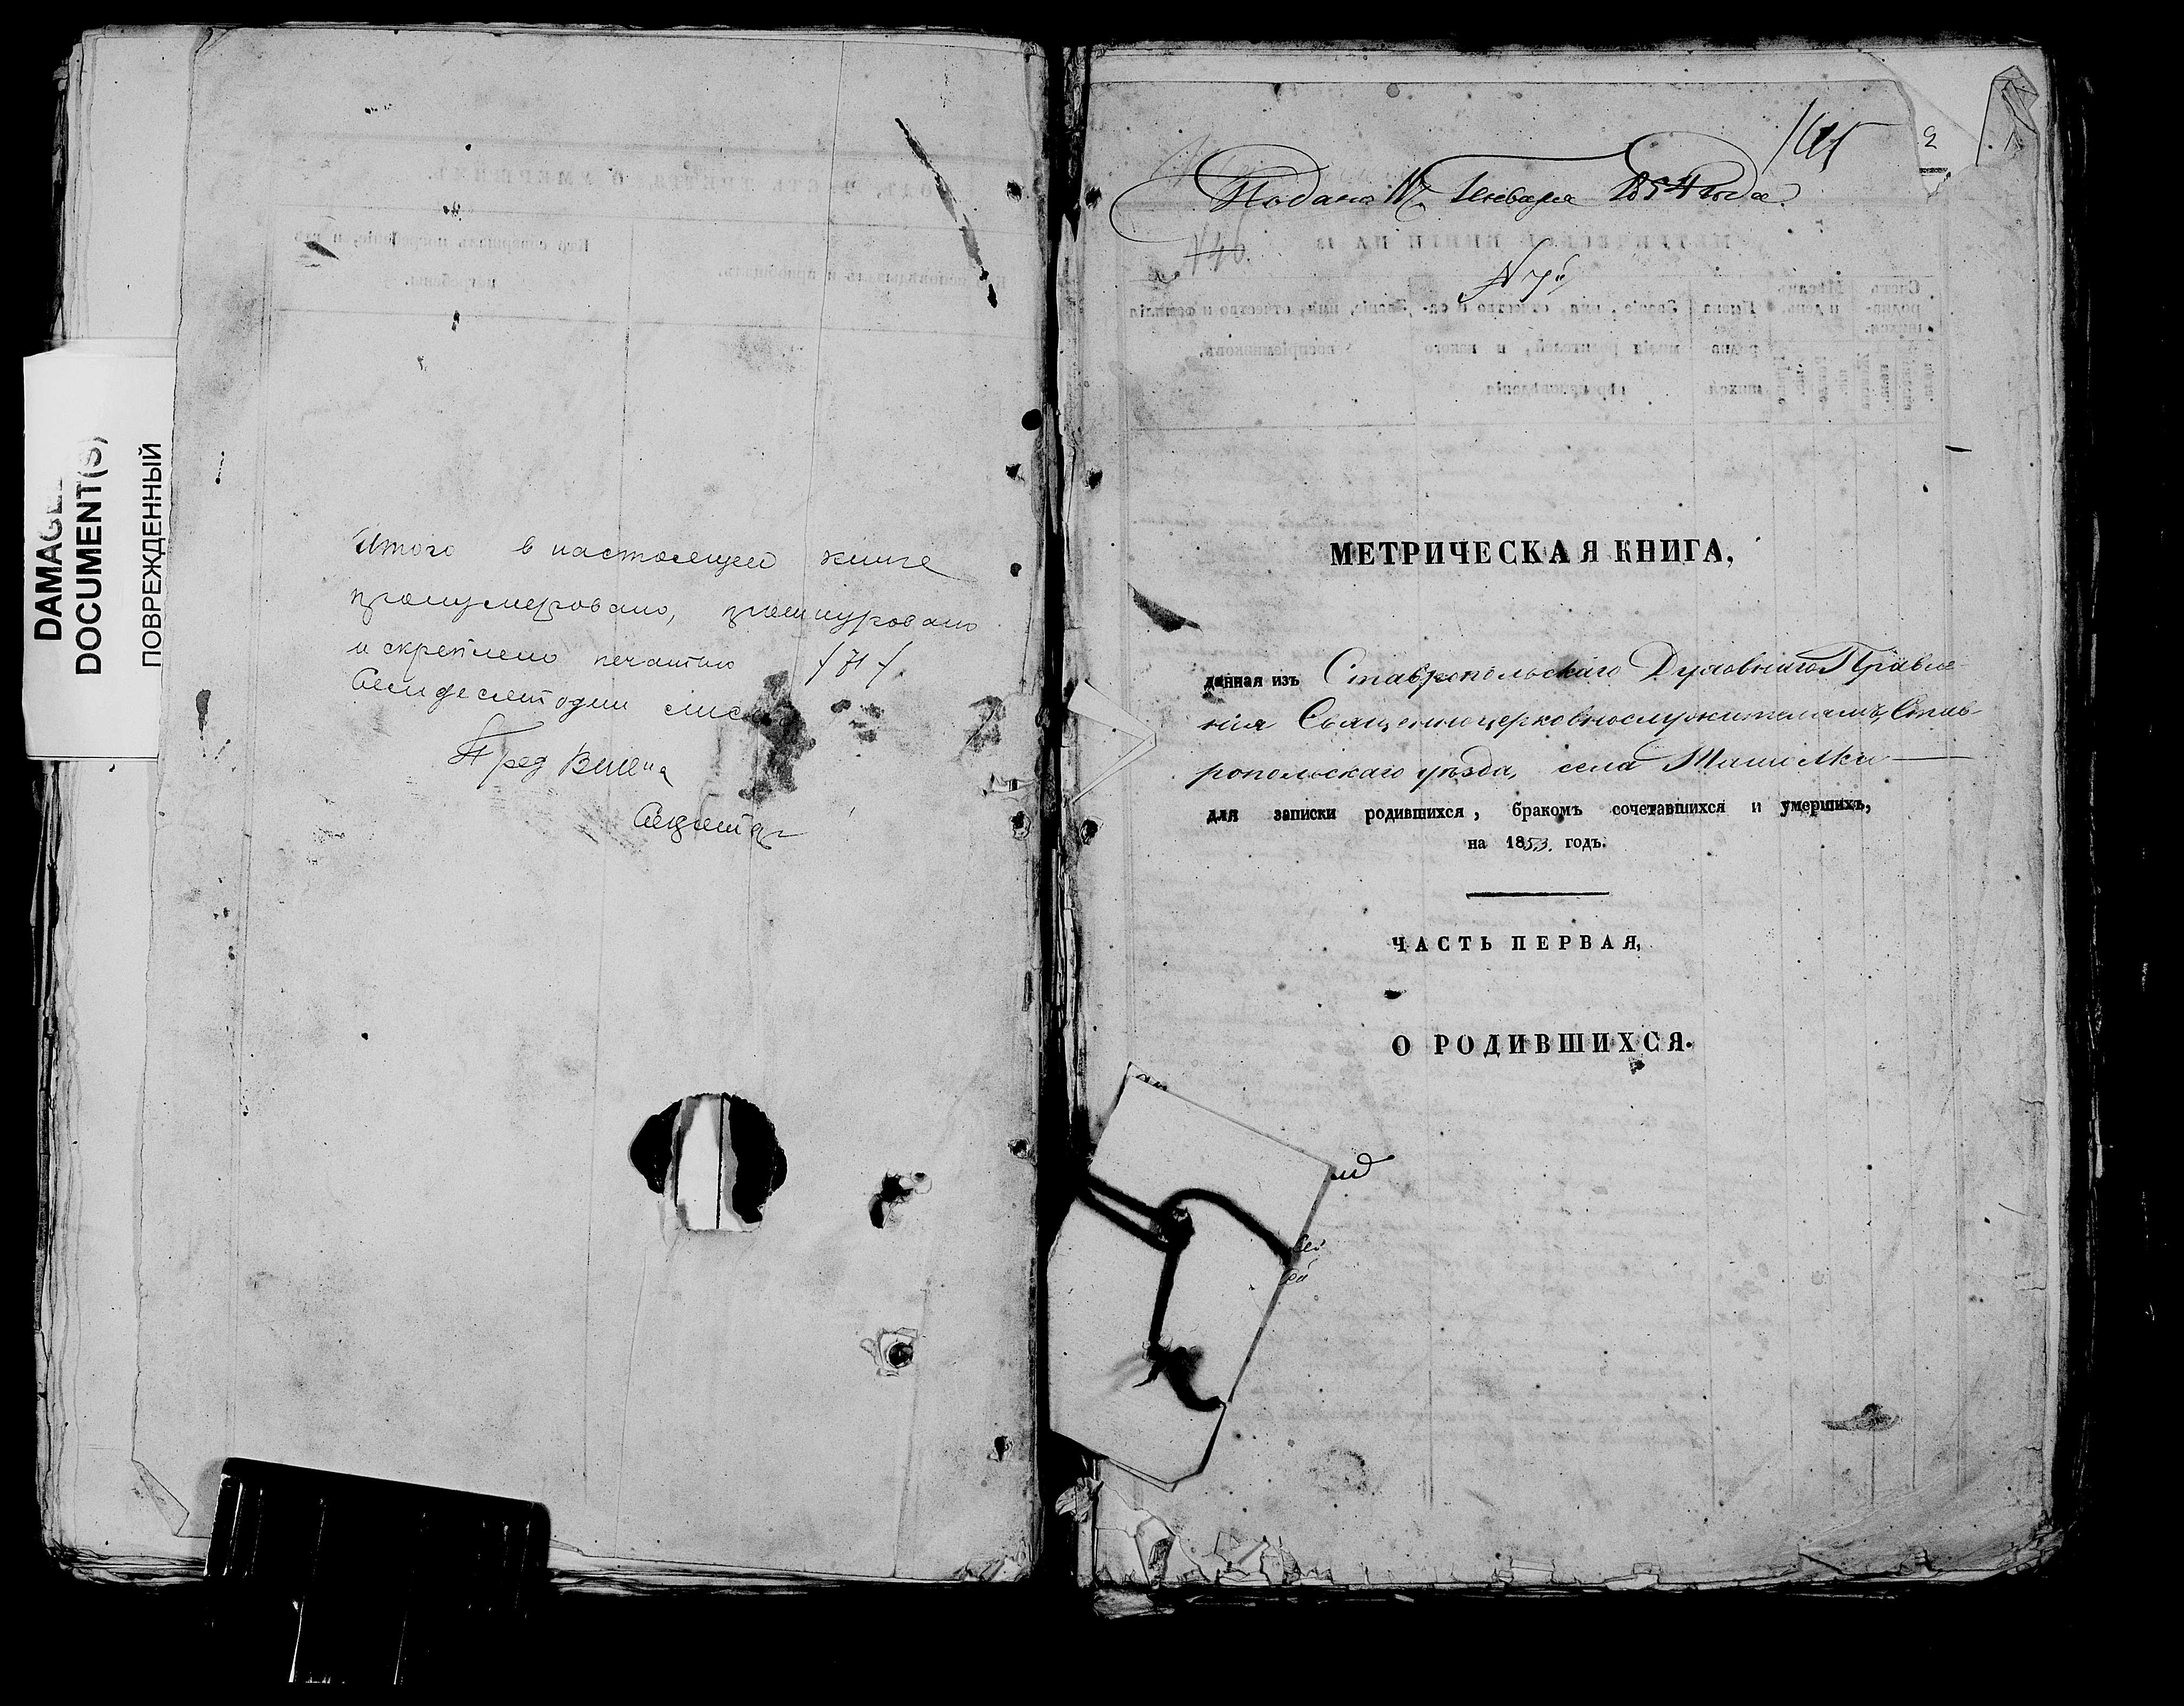 DOCUMENT(S)
ПОВРЕЖДЕННЫЙ
Итого в настоящей книге
пронумеровано, прошнуровано
и скреплено печатью /71/
Семидесят один лис
Пред
Секретар
Подана Января 1854 года.
2
№ 7й
МЕТРИЧЕСКАЯ КНИГА,
данная изъ Ставропольскаго Духовнаго Правле-
нія Священноцерковнослужителямъ Став-
ропольскаго уѣзда, села Ташолки
для записки родившихся, бракомъ сочетавшихся и умершихъ,
на 1853. годъ.
ЧАСТЬ ПЕРВАЯ,
О РОДИВШИХСЯ.